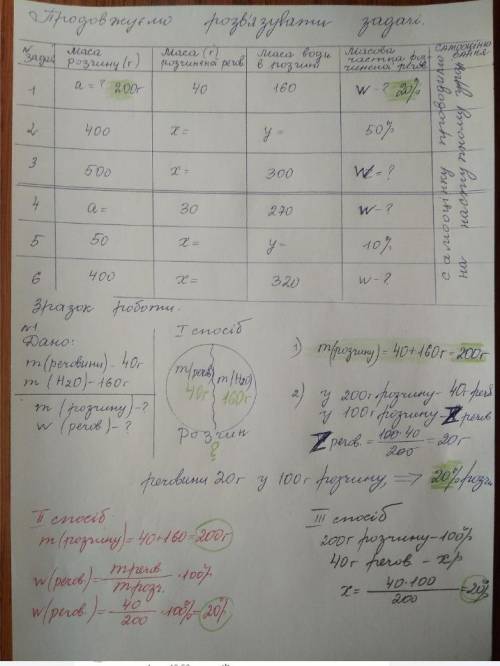 Продовжуємо розв'язувати задачі.
№ задачі
Маса розчину (г)
Маса (г) розчиненої речов
Маса води в розчині
Масова частка роз-
чиненої речов
самооцінку проводимо
на наступному уроці
1 a=? 200г 40 160 W-? 20%
2 400 x= y= 50%
3 500 x= 300 W=?
4 a= 30 270 W-?
5 50 x= y= 10%
6 400 x= 320 w-?
Зразок роботи.
№1
Дано:
m(речовини)-40г
m (H2O)-160г
m (розчину)-?
w (речов)-?
I спосіб
m(речов) 40г
m(H2O) 160г
Розчин
?
1) m(розчину)=40+160г=200г
2) у 200г розчину-40г реч
у 100г розчину-Z речов
Z речов.= 100·40 / 200 =20г
речовини 20г у 100г розчину, => 20% розчин
II спосіб
m(розчину)=40+160=200г
w(речов)= m речов / m розч. ·100%
w(речов)= 40 / 200 ·100%=20%
III спосіб
200г розчину-100%
40г речов - x%
x= 40·100 / 200 =20%